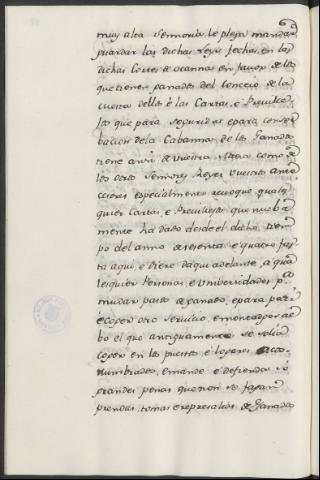 6
muy alta Señoria, le plega mandar
guardar las dichas leyes fechas en las
dichas Cortes de ocanna en favor de los
que tienen ganados del Concejo de la
mesta dellos é las Cartas, e Preville-
jos que para seguridad e para conser
bacion de la Cabanna de los Ganados
tiene ansi de Vuestra Alteza como de
los otros Señores Reyes vuestros ante
cesores especialmente revoque quales
quier Cartas, e Previllejos que nueba
mente ha dado desde el dicho tiem
po del anno de sesenta e quatro fas
ta aqui, e diere daqui adelante, a qua
lesquier Personas, e Universidades pa
mudar paso de ganado, e para pedir
e coger otro servicio, e montadgo sal
bo el que antiguamente se solia
coger en los puertos, é logares acos
tumbrados, e mande e defienda so
grandes penas que non se fagan
prendas, tomas e represalias de Ganados